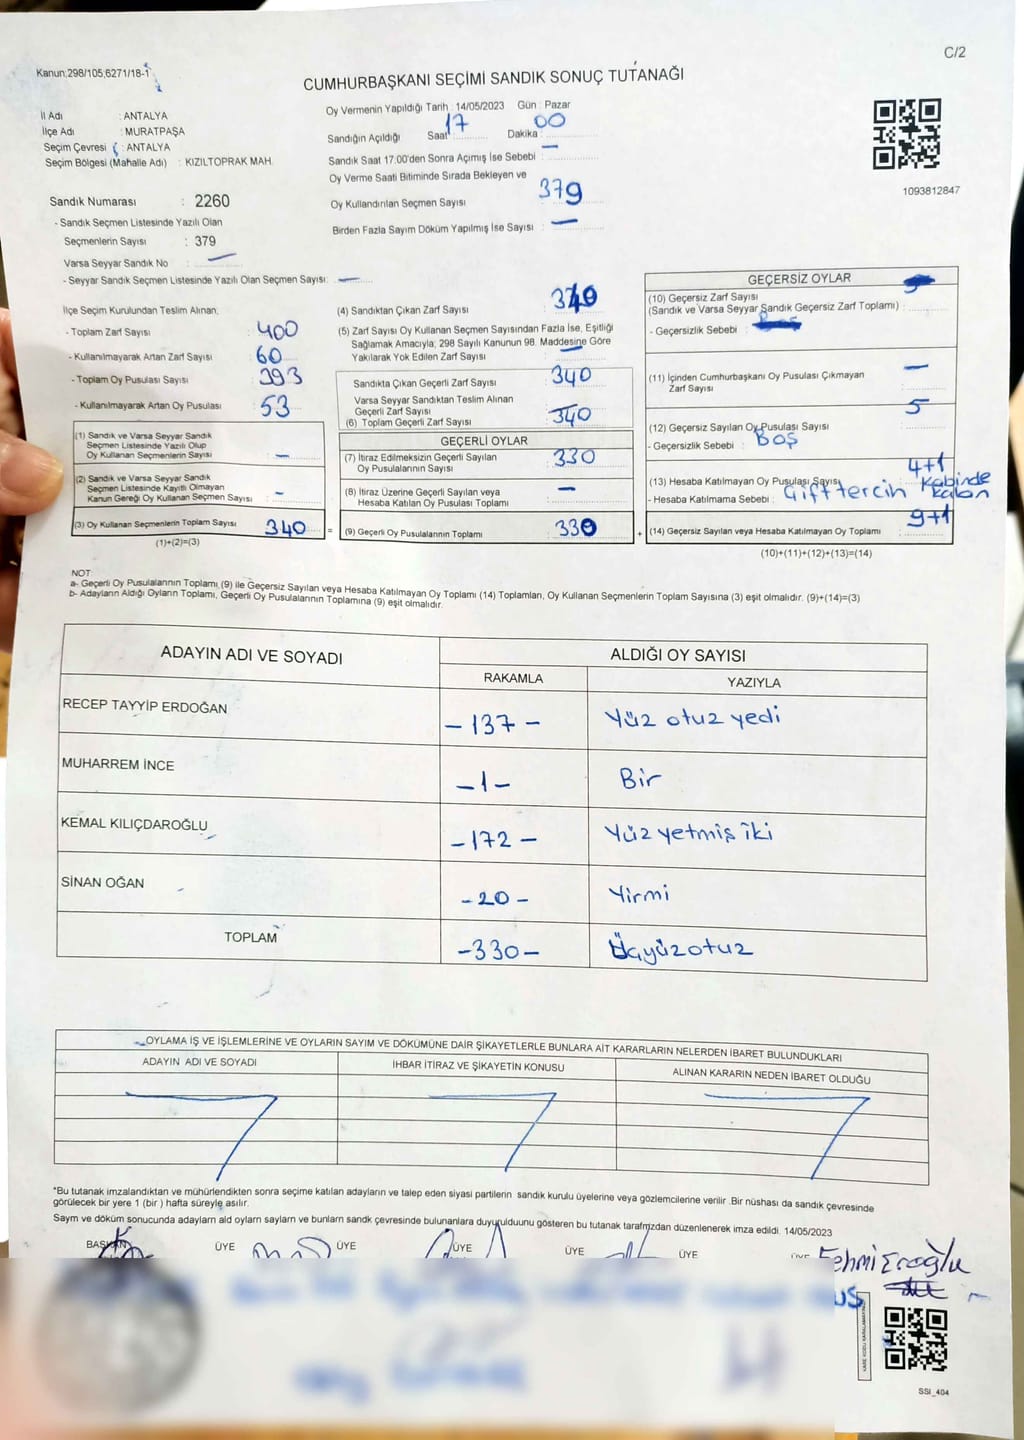 C/2
Kanun;298/105,6271/18-1
CUMHURBAŞKANI SEÇİMİ SANDIK SONUÇ TUTANAĞI
İl Adı : ANTALYA
İlçe Adı : MURATPAŞA
Seçim Çevresi : ANTALYA
Seçim Bölgesi (Mahalle Adı) : KIZILTOPRAK MAH.
Oy Vermenin Yapıldığı Tarih : 14/05/2023 Gün : Pazar
Sandığın Açıldığı Saat 17 Dakika : 00
Sandık Saat 17.00'den Sonra Açımış İse Sebebi : —
Oy Verme Saati Bitiminde Sırada Bekleyen ve
Oy Kullandırılan Seçmen Sayısı 379
Birden Fazla Sayım Döküm Yapılmış İse Sayısı : —
1093812847
Sandık Numarası : 2260
- Sandık Seçmen Listesinde Yazılı Olan
Seçmenlerin Sayısı : 379
Varsa Seyyar Sandık No : —
- Seyyar Sandık Seçmen Listesinde Yazılı Olan Seçmen Sayısı: —
İlçe Seçim Kurulundan Teslim Alınan;
- Toplam Zarf Sayısı : 400
- Kullanılmayarak Artan Zarf Sayısı : 60
- Toplam Oy Pusulası Sayısı : 393
- Kullanılmayarak Artan Oy Pusulası : 53
(1) Sandık ve Varsa Seyyar Sandık
Seçmen Listesinde Yazılı Olup
Oy Kullanan Seçmenlerin Sayısı : —
(2) Sandık ve Varsa Seyyar Sandık
Seçmen Listesinde Kayıtlı Olmayan
Kanun Gereği Oy Kullanan Seçmen Sayısı : -
(3) Oy Kullanan Seçmenlerin Toplam Sayısı 340 =
(1)+(2)=(3)
(4) Sandıktan Çıkan Zarf Sayısı :
(5) Zarf Sayısı Oy Kullanan Seçmen Sayısından Fazla İse, Eşitliği
Sağlamak Amacıyla; 298 Sayılı Kanunun 98. Maddesine Göre
Yakılarak Yok Edilen Zarf Sayısı : —
Sandıkta Çıkan Geçerli Zarf Sayısı : 340
Varsa Seyyar Sandıktan Teslim Alınan
Geçerli Zarf Sayısı : —
(6) Toplam Geçerli Zarf Sayısı 340
GEÇERLİ OYLAR
(7) İtiraz Edilmeksizin Geçerli Sayılan
Oy Pusulalarının Sayısı : 330
(8) İtiraz Üzerine Geçerli Sayılan veya
Hesaba Katılan Oy Pusulası Toplamı : —
(9) Geçerli Oy Pusulalarının Toplamı 330 +
GEÇERSİZ OYLAR
(10) Geçersiz Zarf Sayısı
(Sandık ve Varsa Seyyar Sandık Geçersiz Zarf Toplamı) :
- Geçersizlik Sebebi :
(11) İçinden Cumhurbaşkanı Oy Pusulası Çıkmayan —
Zarf Sayısı
5
(12) Geçersiz Sayılan Oy Pusulası Sayısı
- Geçersizlik Sebebi : BOŞ
4+1
(13) Hesaba Katılmayan Oy Pusulası Sayısı
- Hesaba Katılmama Sebebi : Çift tercih Kabinde kalan
9+1
(14) Geçersiz Sayılan veya Hesaba Katılmayan Oy Toplamı
(10)+(11)+(12)+(13)=(14)
NOT:
a- Geçerli Oy Pusulalarının Toplamı, (9) ile Geçersiz Sayılan veya Hesaba Katılmayan Oy Toplamı (14) Toplamları, Oy Kullanan Seçmenlerin Toplam Sayısına (3) eşit olmalıdır. (9)+(14)=(3)
b- Adayların Aldığı Oyların Toplamı, Geçerli Oy Pusulalarının Toplamına (9) eşit olmalıdır.
ADAYIN ADI VE SOYADI ALDIĞI OY SAYISI
RAKAMLA YAZIYLA
RECEP TAYYİP ERDOĞAN - 137 - Yüz otuz yedi
MUHARREM İNCE - 1 - Bir
KEMAL KILIÇDAROĞLU - 172 - Yüz yetmiş iki
SİNAN OĞAN - 20 - Yirmi
TOPLAM - 330 - Üçyüzotuz
OYLAMA İŞ VE İŞLEMLERİNE VE OYLARIN SAYIM VE DÖKÜMÜNE DAİR ŞİKAYETLERLE BUNLARA AİT KARARLARIN NELERDEN İBARET BULUNDUKLARI
ADAYIN ADI VE SOYADI İHBAR İTİRAZ VE ŞİKAYETİN KONUSU ALINAN KARARIN NEDEN İBARET OLDUĞU
*Bu tutanak imzalandıktan ve mühürlendikten sonra seçime katılan adayların ve talep eden siyasi partilerin sandık kurulu üyelerine veya gözlemcilerine verilir .Bir nüshası da sandık çevresinde
görülecek bir yere 1 (bir ) hafta süreyle asılır.
Sayım ve döküm sonucunda adayların ald oyların sayları ve bunların sandk çevresinde bulunanlara duyurulduunu gösteren bu tutanak tarafımzdan düzenlenerek imza edildi. 14/05/2023
BAŞKAN ÜYE ÜYE ÜYE ÜYE ÜYE
Fehmi Eroğlu
SSİ_404